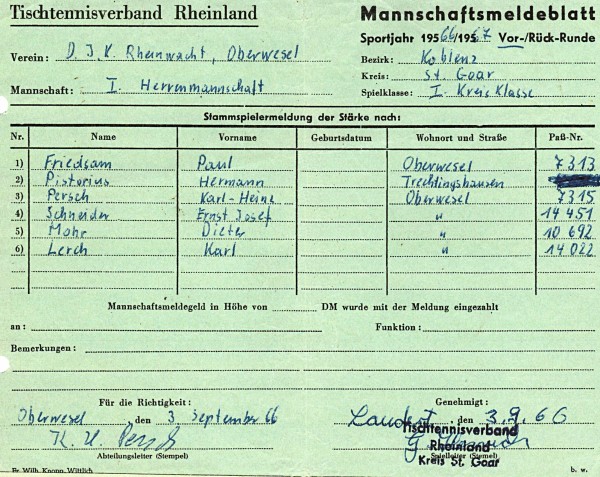 Tischtennisverband Rheinland
Mannschaftsmeldeblatt
Sportjahr 1966/1967 Vor-/Rück-Runde
Verein: D.J.K. Rheinwacht, Oberwesel
Bezirk: Koblenz
Kreis: St. Goar
Mannschaft: I. Herrenmannschaft
Spielklasse: I. Kreisklasse
Stammspielermeldung der Stärke nach:
Nr. Name Vorname Geburtsdatum Wohnort und Straße Paß-Nr.
1) Friedsam Paul Oberwesel 7313
2) Pistorius Hermann Trechtingshausen
3) Persch Karl-Heinz Oberwesel 7315
4) Schneider Ernst Josef " 14 451
5) Mohr Dieter " 10 692
6) Lerch Karl " 14 022
Mannschaftsmeldegeld in Höhe von DM wurde mit der Meldung eingezahlt
an: Funktion:
Bemerkungen:
Für die Richtigkeit: Genehmigt:
Oberwesel, den 3. September 66
, den 3.9.66
Tischtennisverband
Rheinland
Kreis St. Goar
Abteilungsleiter (Stempel) Spielleiter (Stempel)
Fr. Wilh. Knopp, Wittlich b. w.